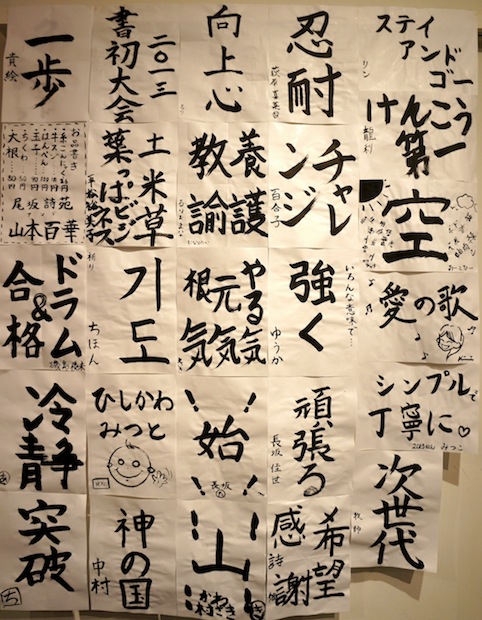 ステイ
アンドゴー
リン
けんこう
第一
龍利
空
愛の歌
シンプルで
丁寧に
みつこ
次世代
忍耐
チャレ
ンジ
百合子
いろんな意味で…
強く
ゆうか
頑張る
長坂佳世
希望
感謝
詩
向上心
養護
教諭
やる気
元気
根気
!始!
長坂
山
かわさき
二〇一三
書初大会
土米草
葉っぱビジネス
祈り
ドエ
ちほん
ひしかわ
みつと
神の国
中村
一歩
貴絵
お品書き
はんぺん
ちくわ
大根
尾坂詩苑
山本百華
ドラム
&
合格
冷静
突破
ち